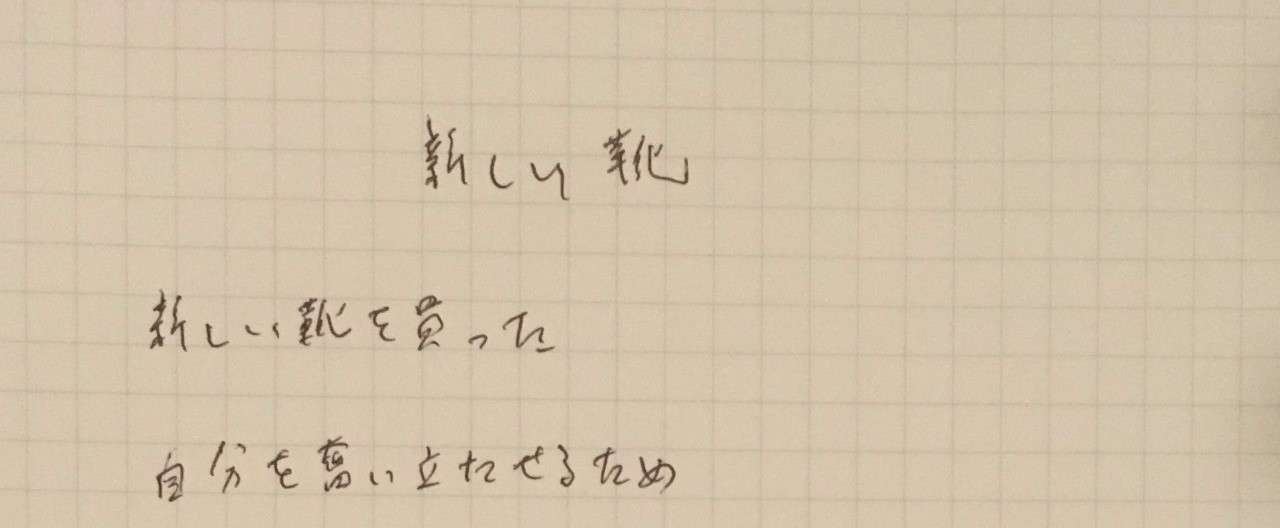 新しい靴
新しい靴を買った
自分を奮い立たせるため